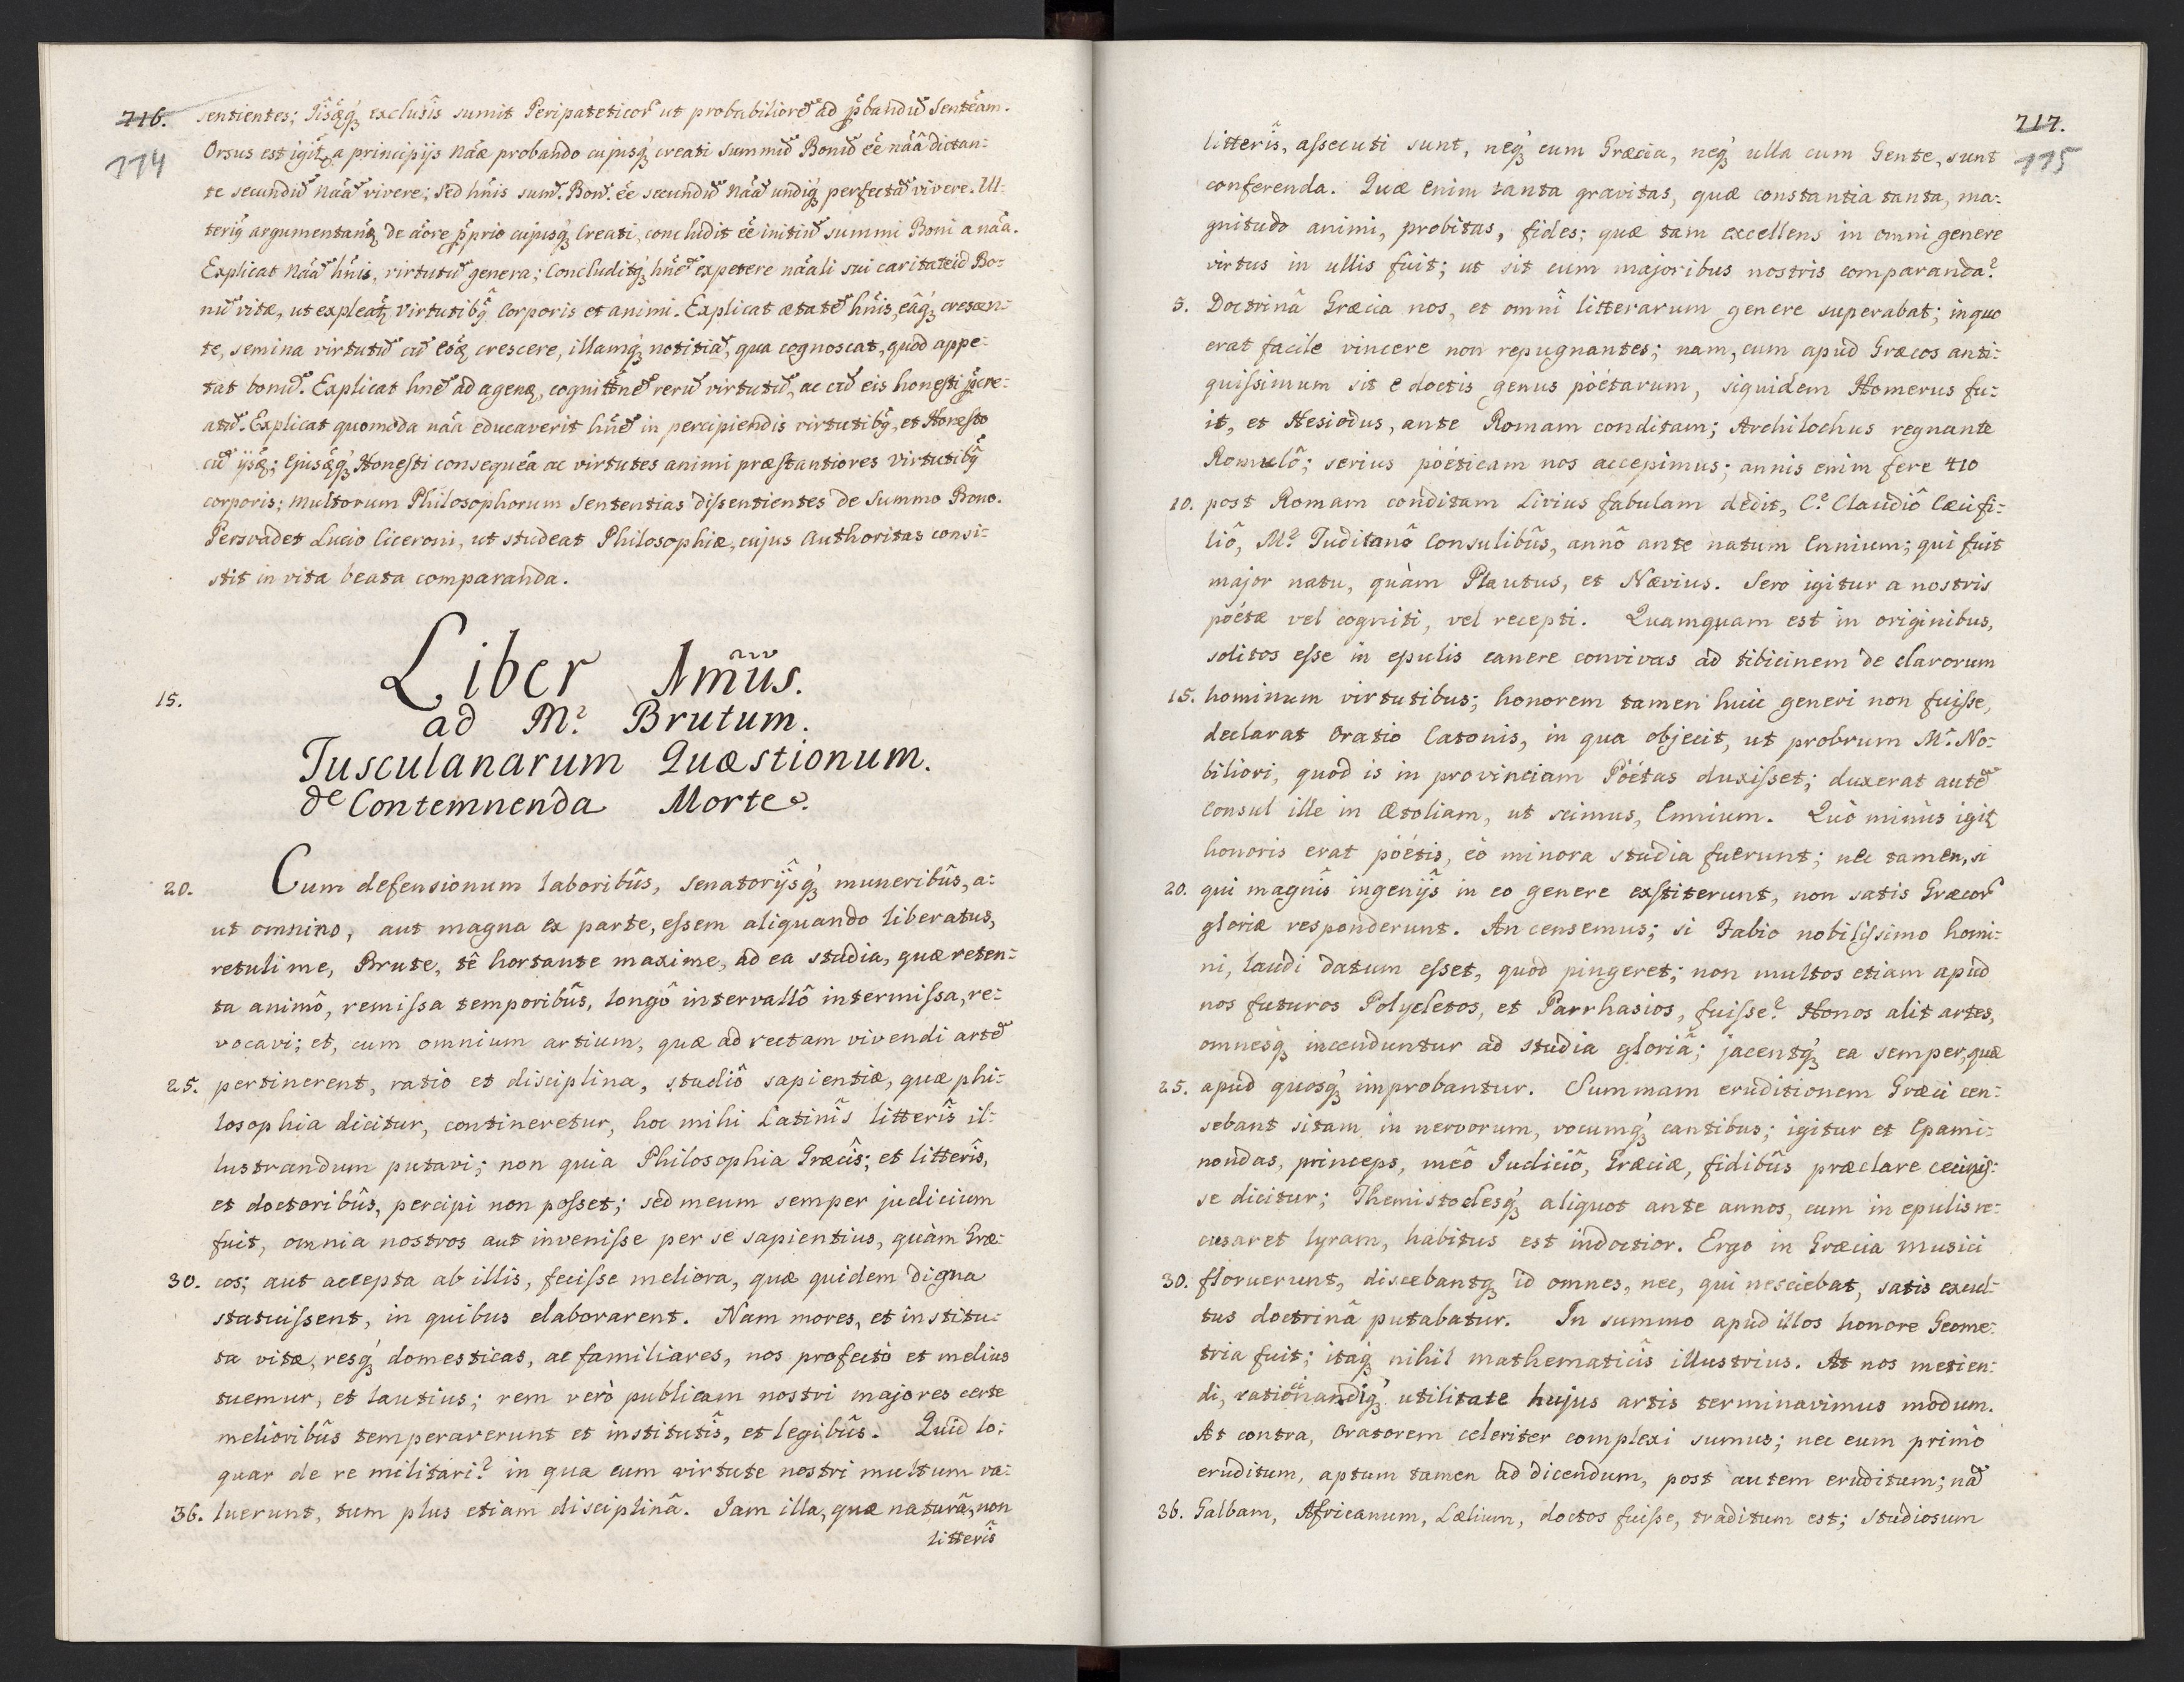 716.
774
sentientes; Jisq́ꝫ exclusis sumit Peripateticor ut probabiliorem̃ ad p̃bandum̃ Senteãm.
Orsus est igit a principijs naæ probando cujusq́ꝫ creati summum̃ Bonum̃ eẽ naâ dictan:
te secundum̃ naam̃ vivere; Sed hñis sum̃. Bon̄. eẽ secundum̃ naam̃ undiq́ꝫ perfectam̃ vivere. Ul:
teriq̃ argumentanꝫ de aõre p̃prio cujusq́ꝫ Creati, concludit eẽ initium̃ summi Boni a naa.
Explicat naam̃ hñis, virtutum̃ genera; Concluditq́ꝫ hñem̃ expetere naali sui caritate id Bo:
num̃ vitæ, ut expleat Virtutibq̃ Corporis et animi. Explicat ætatem̃ hñis, eâq́ꝫ crescen:
te, semina virtutum̃ cum̃ eâ crescere, illamq́ꝫ notitiam̃, qua cognoscat, quod appe:
tat bonum̃. Explicat hñem̃ ad agend, cognitionem̃ rerum̃ virtutum̃, ac cum̃ eis honesti p̃cre:
atum̃. Explicat quomodo naa educaverit hñem̃ in percipiendis virtutibq̃, et Honesto
cum̃ ijs; Ejusq́ꝫ Honesti consequẽa ac virtutes animi præstantiores Virtutibq̃
corporis; multorum Philosophorum Sententias dissentientes de Summo Bono.
Persvadet Lucio Ciceroni, ut studeat Philosophiæ, cujus Authoritas consi:
stit in vita beata comparanda.
Liber Im̃us.
15. ad M.ͬ Brutum.
Tusculanarum Quæstionum.
de Contemnenda Morte.
20. Cum defensionum laboribûs, Senatorijsq́ꝫ muneribûs, a:
ut omnino, aut magna ex parte, essem aliquando liberatus,
retuli me, Brute, tê hortante maxime, ad ea studia, quæ reten:
ta animô, remissa temporibûs, longô intervallô intermissa, re:
vocavi; et, cum omnium artium, quæ ad rectam vivendi artem̃
25. pertinerent, ratio et disciplina, studiô sapientiæ, quæ phi:
losophia dicitur, contineretur, hoc mihi Latinîs litterîs il:
lustrandum putavi; non quia Philosophia Græcîs; et litterîs,
et doctoribûs, percipi non posset; sed meum semper judicium
fuit, omnia nostros aut invenisse per se sapientius, quàm Græ:
30. cos; aut accepta ab illis, fecisse meliora, quæ quidem digna
statuissent, in quibus elaborarent. Nam mores, et institu:
ta vitæ, resq́ꝫ domesticas, ac familiares, nos profectò et melius
tuemur, et lautius; rem verò publicam nostri majores certe
melioribûs temperaverunt et institutîs, et legibûs. Quid lo:
quar de re militari? in qua cum virtute nostri multum va:
36. luerunt, tum plus etiam disciplinâ. Jam illa, quæ naturâ, non
litterîs
717.
775
litterîs, assecuti sunt, neq́ꝫ cum Græcia, neq́ꝫ ulla cum Gente, sunt
conferenda. Quæ enim tanta gravitas, quæ constantia tanta, ma:
gnitudo animi, probitas, fides; quæ tam excellens in omni genere
virtus in ullis fuit; ut sit cum majoribus nostris comparanda?
5. Doctrinâ Græcia nos, et omnî litterarum genere superabat; in quo
erat facile vincere non repugnantes; nam, cum apud Græcos anti:
quissimum sit e doctis genus poétarum, siquidem Homerus fu:
it, et Hesiodus, ante Romam conditam; Archilochus regnante
Romulô; serius poéticam nos accepimus; annis enim fere 410
10. post Romam conditam Livius fabulam dedit, C.ͦ Claudiô Cæci fi:
liô, M.ͦ Tuditanô Consulibûs, annô ante natum Ennium; qui fuit
major natu, quàm Plautus, et Nævius. Sero igitur a nostris
poétæ vel cogniti, vel recepti. Quamquam est in originibus,
solitos esse in epulis canere convivas ad tibicinem de clarorum
15. hominum virtutibus; honorem tamen huic generi non fuisse,
declarat Oratio Catonis, in qua objecit, ut probrum M.ͦ No:
biliori, quod is in provinciam Poétas duxisset; duxerat autem̃
Consul ille in Ætoliam, ut scimus, Ennium. Quò minùs igit
honoris erat poétis, eò minora studia fuerunt; nec tamen, si
20. qui magnîs ingenijs in eo genere exstiterunt, non satis Græcor
gloriæ responderunt. An censemus; si Fabio nobilissimo homi:
ni, laudi datum esset, quod pingeret; non multos etiam apud
nos futuros Polycletos, et Parrhasios, fuisse? Honos alit artes,
omnesq́ꝫ incenduntur ad studia gloriâ; jacentq́ꝫ ea semper, quæ
25. apud quosq́ꝫ improbantur. Summam eruditionem Græci cen:
sebant sitam in nervorum, vocumq́ꝫ cantibus; igitur et Epami:
nondas, princeps, meô Judiciô, Græciæ, fidibûs præclare cecinis:
se dicitur; Themistoclesq́ꝫ aliquot ante annos, cum in epulis re:
cusaret lyram, habitus est indoctior. Ergo in Græcia musici
30. floruerunt, discebantqꝫ id omnes, nec, qui nesciebat, satis excul:
tus doctrinâ putabatur. In summo apud illos honore Geome:
tria fuit; itaq́ꝫ nihil mathematicîs illustrius. At nos metien:
di, ratiocinandiq́ꝫ utilitate hujus artis terminavimus modum.
At contra, Oratorem celeriter complexi sumus; nec eum primò
eruditum, aptum tamen ad dicendum, post autem eruditum; nam̃
36. Galbam, Africanum, Lælium, doctos fuisse, traditum est; studiosum